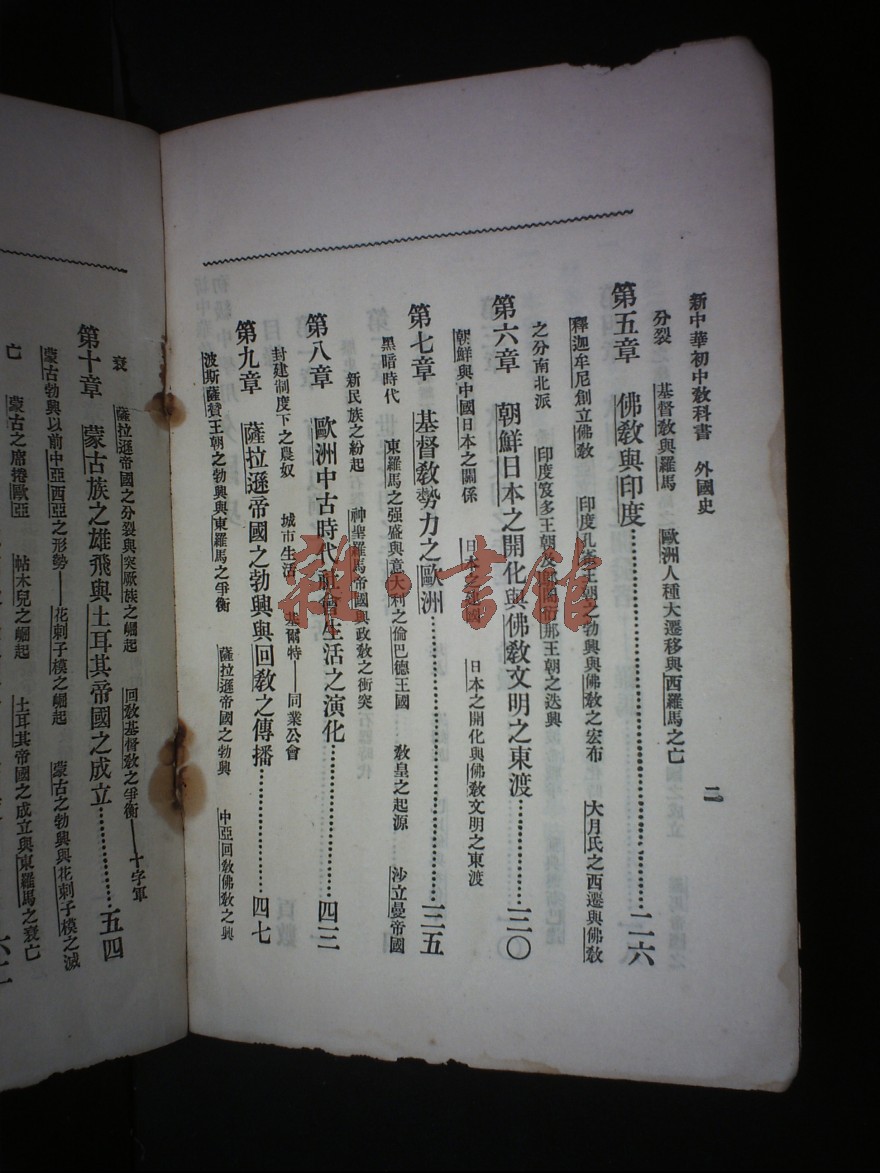 新中華初中教科書　外國史
二
分裂　基督教與羅馬　歐洲人種大遷移與西羅馬之亡
第五章　佛教與印度…………二六
釋迦牟尼創立佛教　印度孔雀王朝之勃興與佛教之宏布　大月氏之西遷與佛教
之分南北派　印度笈多王朝及　王朝之迭興
第六章　朝鮮日本之開化與佛教文明之東渡…………三〇
朝鮮與中國日本之關係　日本之建國　日本之開化與佛教文明之東渡
第七章　基督教勢力之歐洲…………三五
黑暗時代　東羅馬之强盛與意大利之倫巴德王國　教皇之起源　沙立曼帝國
新民族之紛起　神聖羅馬帝國與政教之衝突
第八章　歐洲中古時代社會生活之演化…………四三
封建制度下之農奴　城市生活　基爾特——同業公會
第九章　薩拉遜帝國之勃興與回教之傳播…………四七
波斯薩贊王朝之勃興與東羅馬之爭衡　薩拉遜帝國之勃興　中亞回教佛教之興
衰　薩拉遜帝國之分裂與突厥族之崛起　回教基督教之爭衡——十字軍
第十章　蒙古族之雄飛與土耳其帝國之成立…………五四
蒙古勃興以前中亞西亞之形勢——花剌子模之崛起　蒙古之勃興與花剌子模之滅
亡　蒙古之席捲歐亞　帖木兒之崛起　土耳其帝國之成立與東羅馬之衰亡
雜·書館